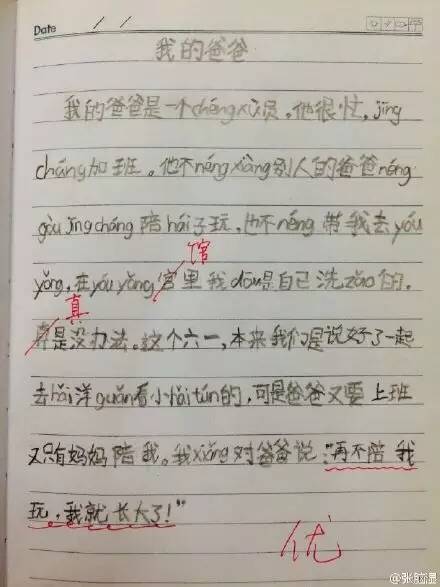 Date / /
我的爸爸
我的爸爸是一个chéng xù员。他很忙,jīng
cháng加班。他不néng xiàng别人的爸爸néng
gòu jīng cháng 陪hái子玩,也不néng 带我去yóu
馆
yǒng,在yóu yǒng宫里我dōu是自己洗zǎo的。
真
真是没办法。这个六一,本来我们是说好了一起
去hǎi洋guǎn看小hǎi tún的,可是爸爸又要上班
又只有妈妈陪我。我xiǎng对爸爸说:"再不陪我
玩,我就长大了!"
优
@张脑湿